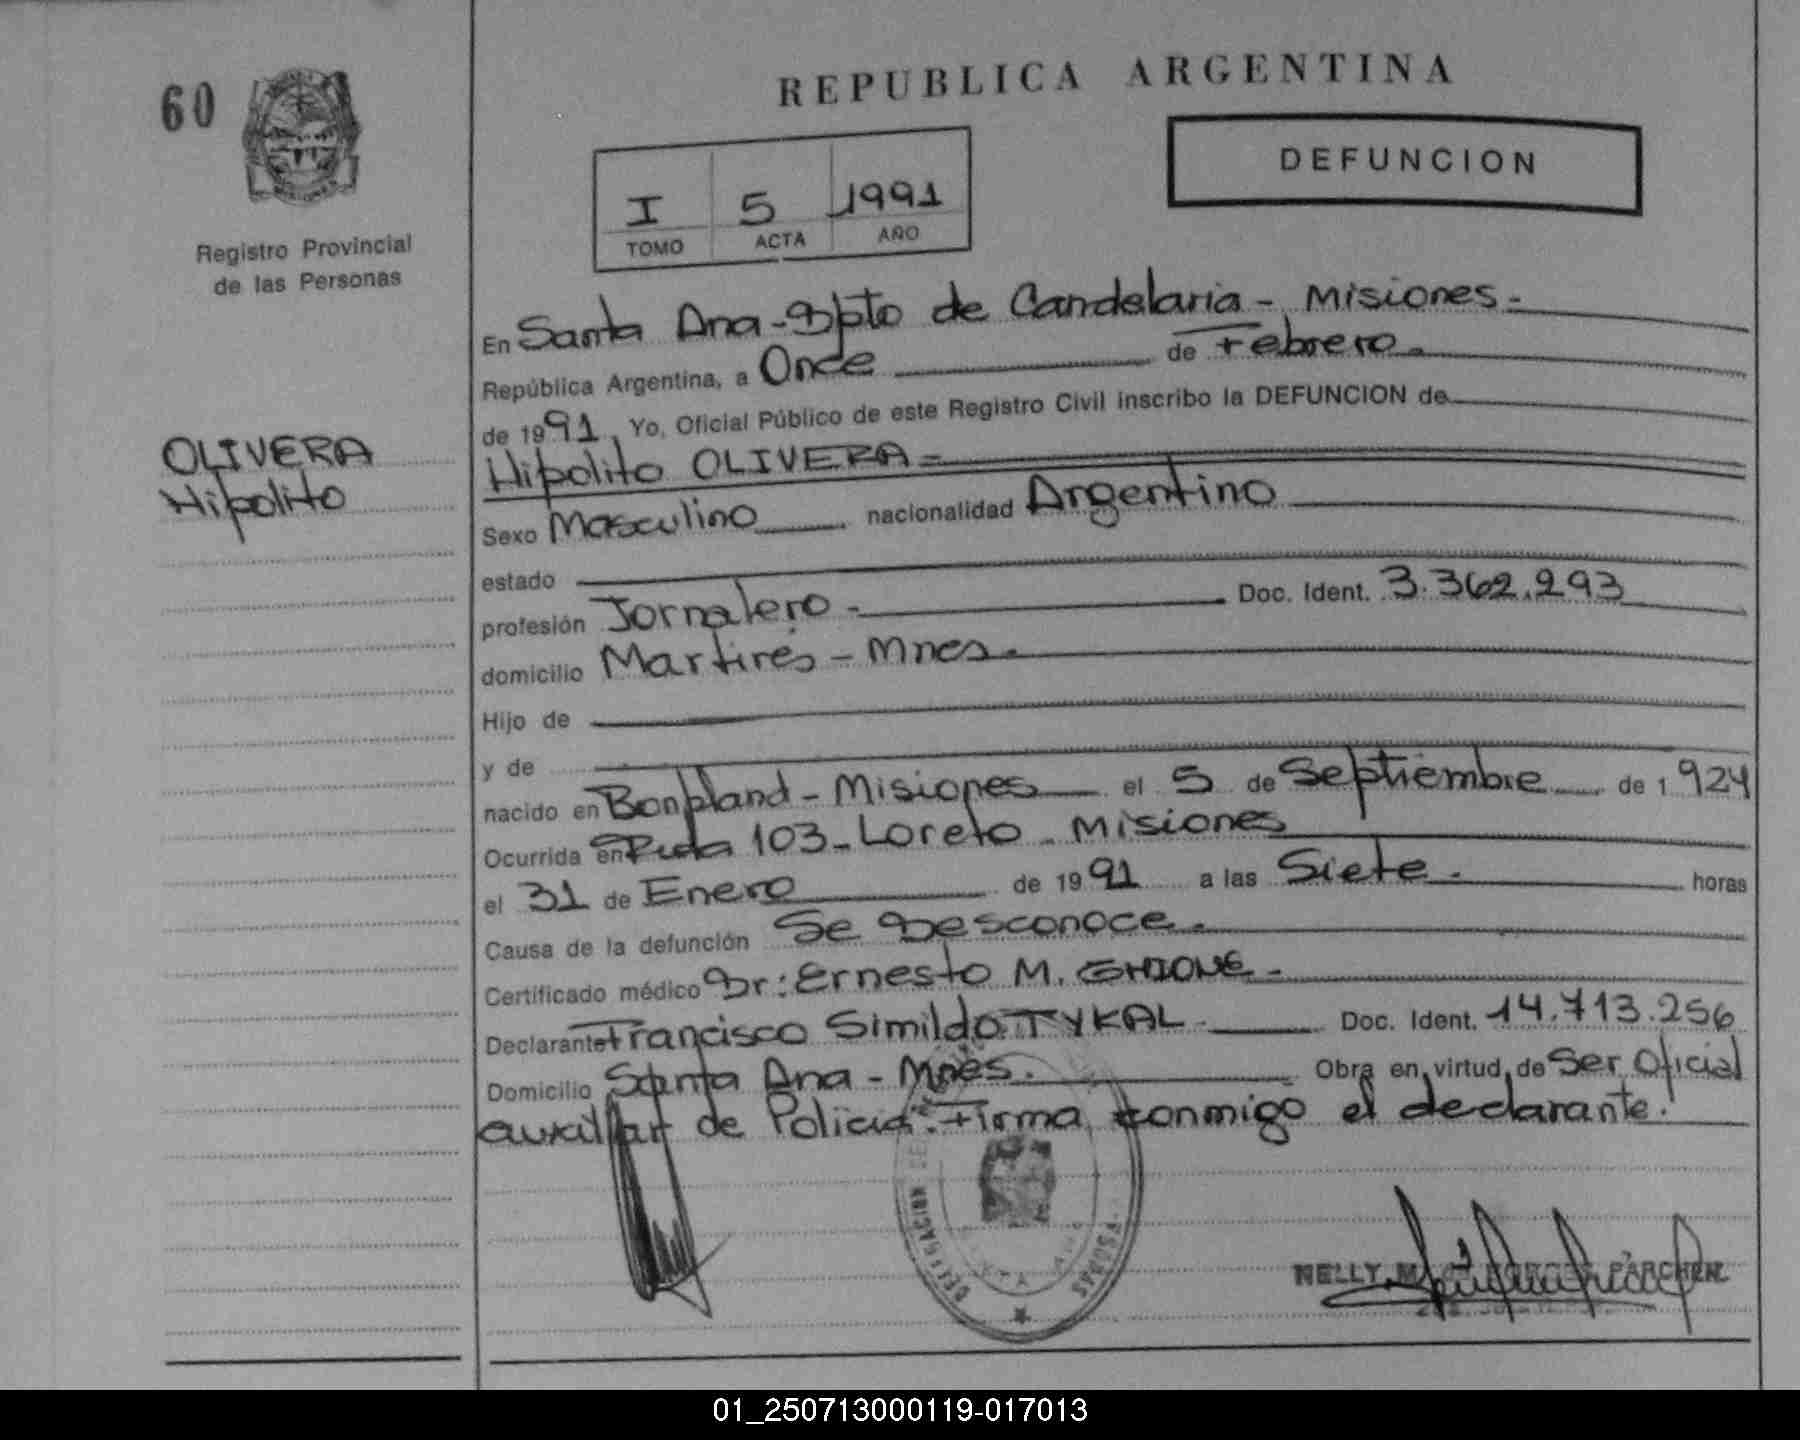 60
REPUBLICA ARGENTINA
DEFUNCION
I 5 1991
TOMO ACTA AÑO
Registro Provincial
de las Personas
OLIVERA
Hipolito
En Santa Ana - Dpto de Candelaria - Misiones -
República Argentina, a Once de Febrero.
de 1991, Yo, Oficial Público de este Registro Civil inscribo la DEFUNCION de
Hipolito OLIVERA =
Sexo Masculino nacionalidad Argentino
estado
profesión Jornalero - Doc. Ident. 3.362.293
domicilio Martires - Mnes.
Hijo de
y de
nacido en Bonpland - Misiones el 5 de Septiembre de 1924
Ocurrida en Ruta 103 - Loreto - Misiones
el 31 de Enero de 1991 a las Siete. horas
Causa de la defunción Se Desconoce.
Certificado médico Dr: Ernesto M. GHIONE -
Declarante Francisco Simildo TYKAL Doc. Ident. 14.713.256
Domicilio Santa Ana - Mnes. Obra en virtud de Ser Oficial
auxiliar de Policia. Firma conmigo el declarante.
DELEGACION
NELLY PARCHEN
01_250713000119-017013